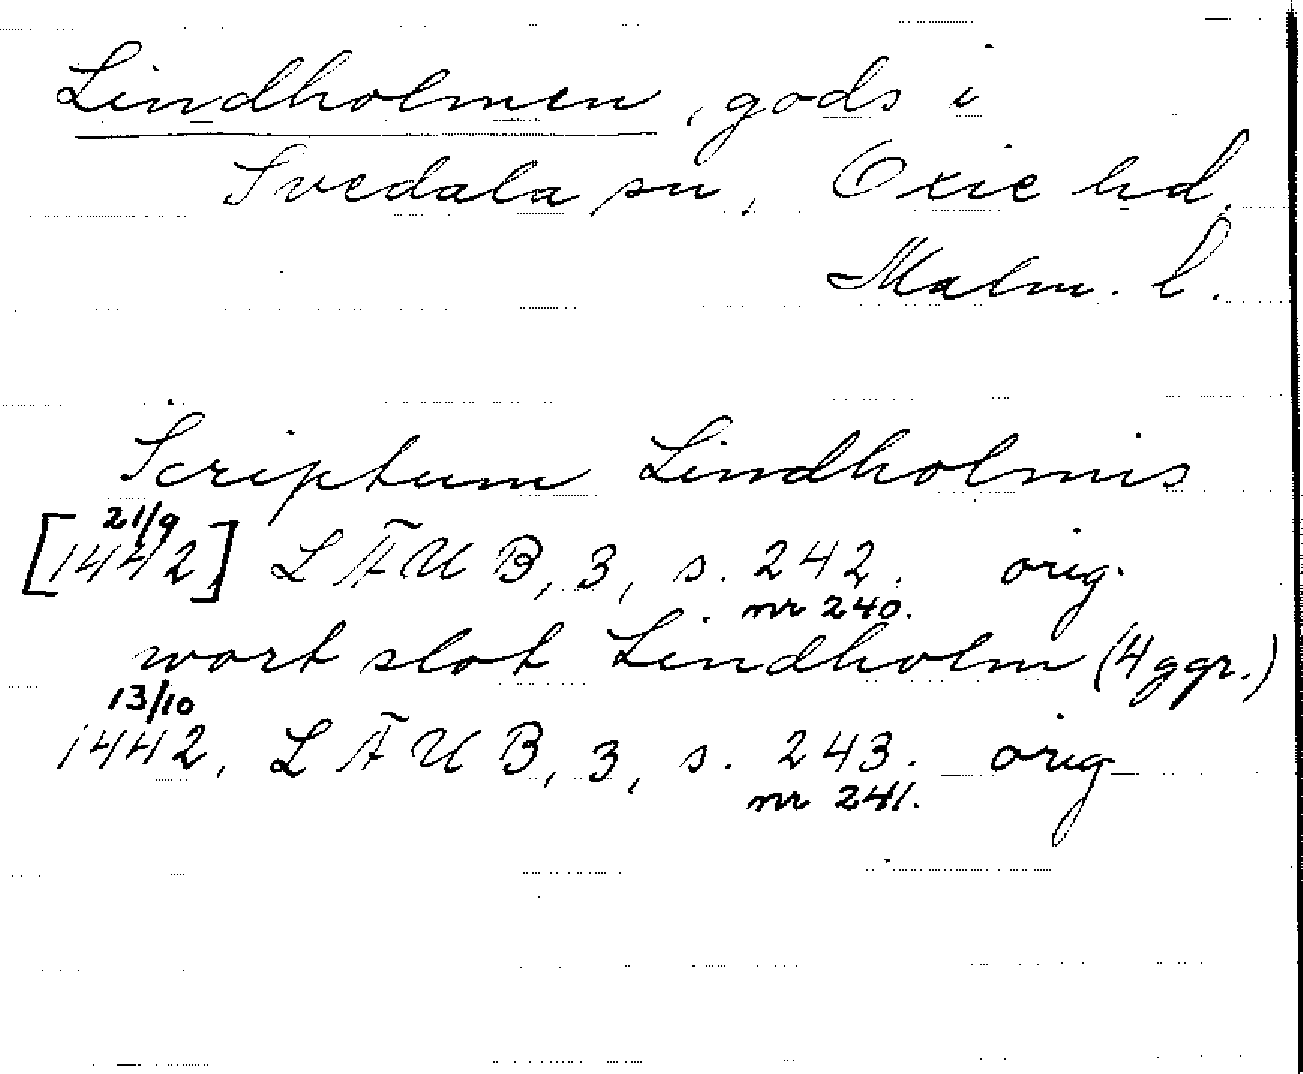 Lindholmen, gods i
Svedala sn, Oxie hd,
Malm. l.
Scriptum Lindholmis
21/9
[1442] LÄUB, 3, s. 242. orig.
nr 240.
wort slot Lindholm (4 ggr.)
13/10
1442, LÄUB, 3, s. 243. orig
nr 241.